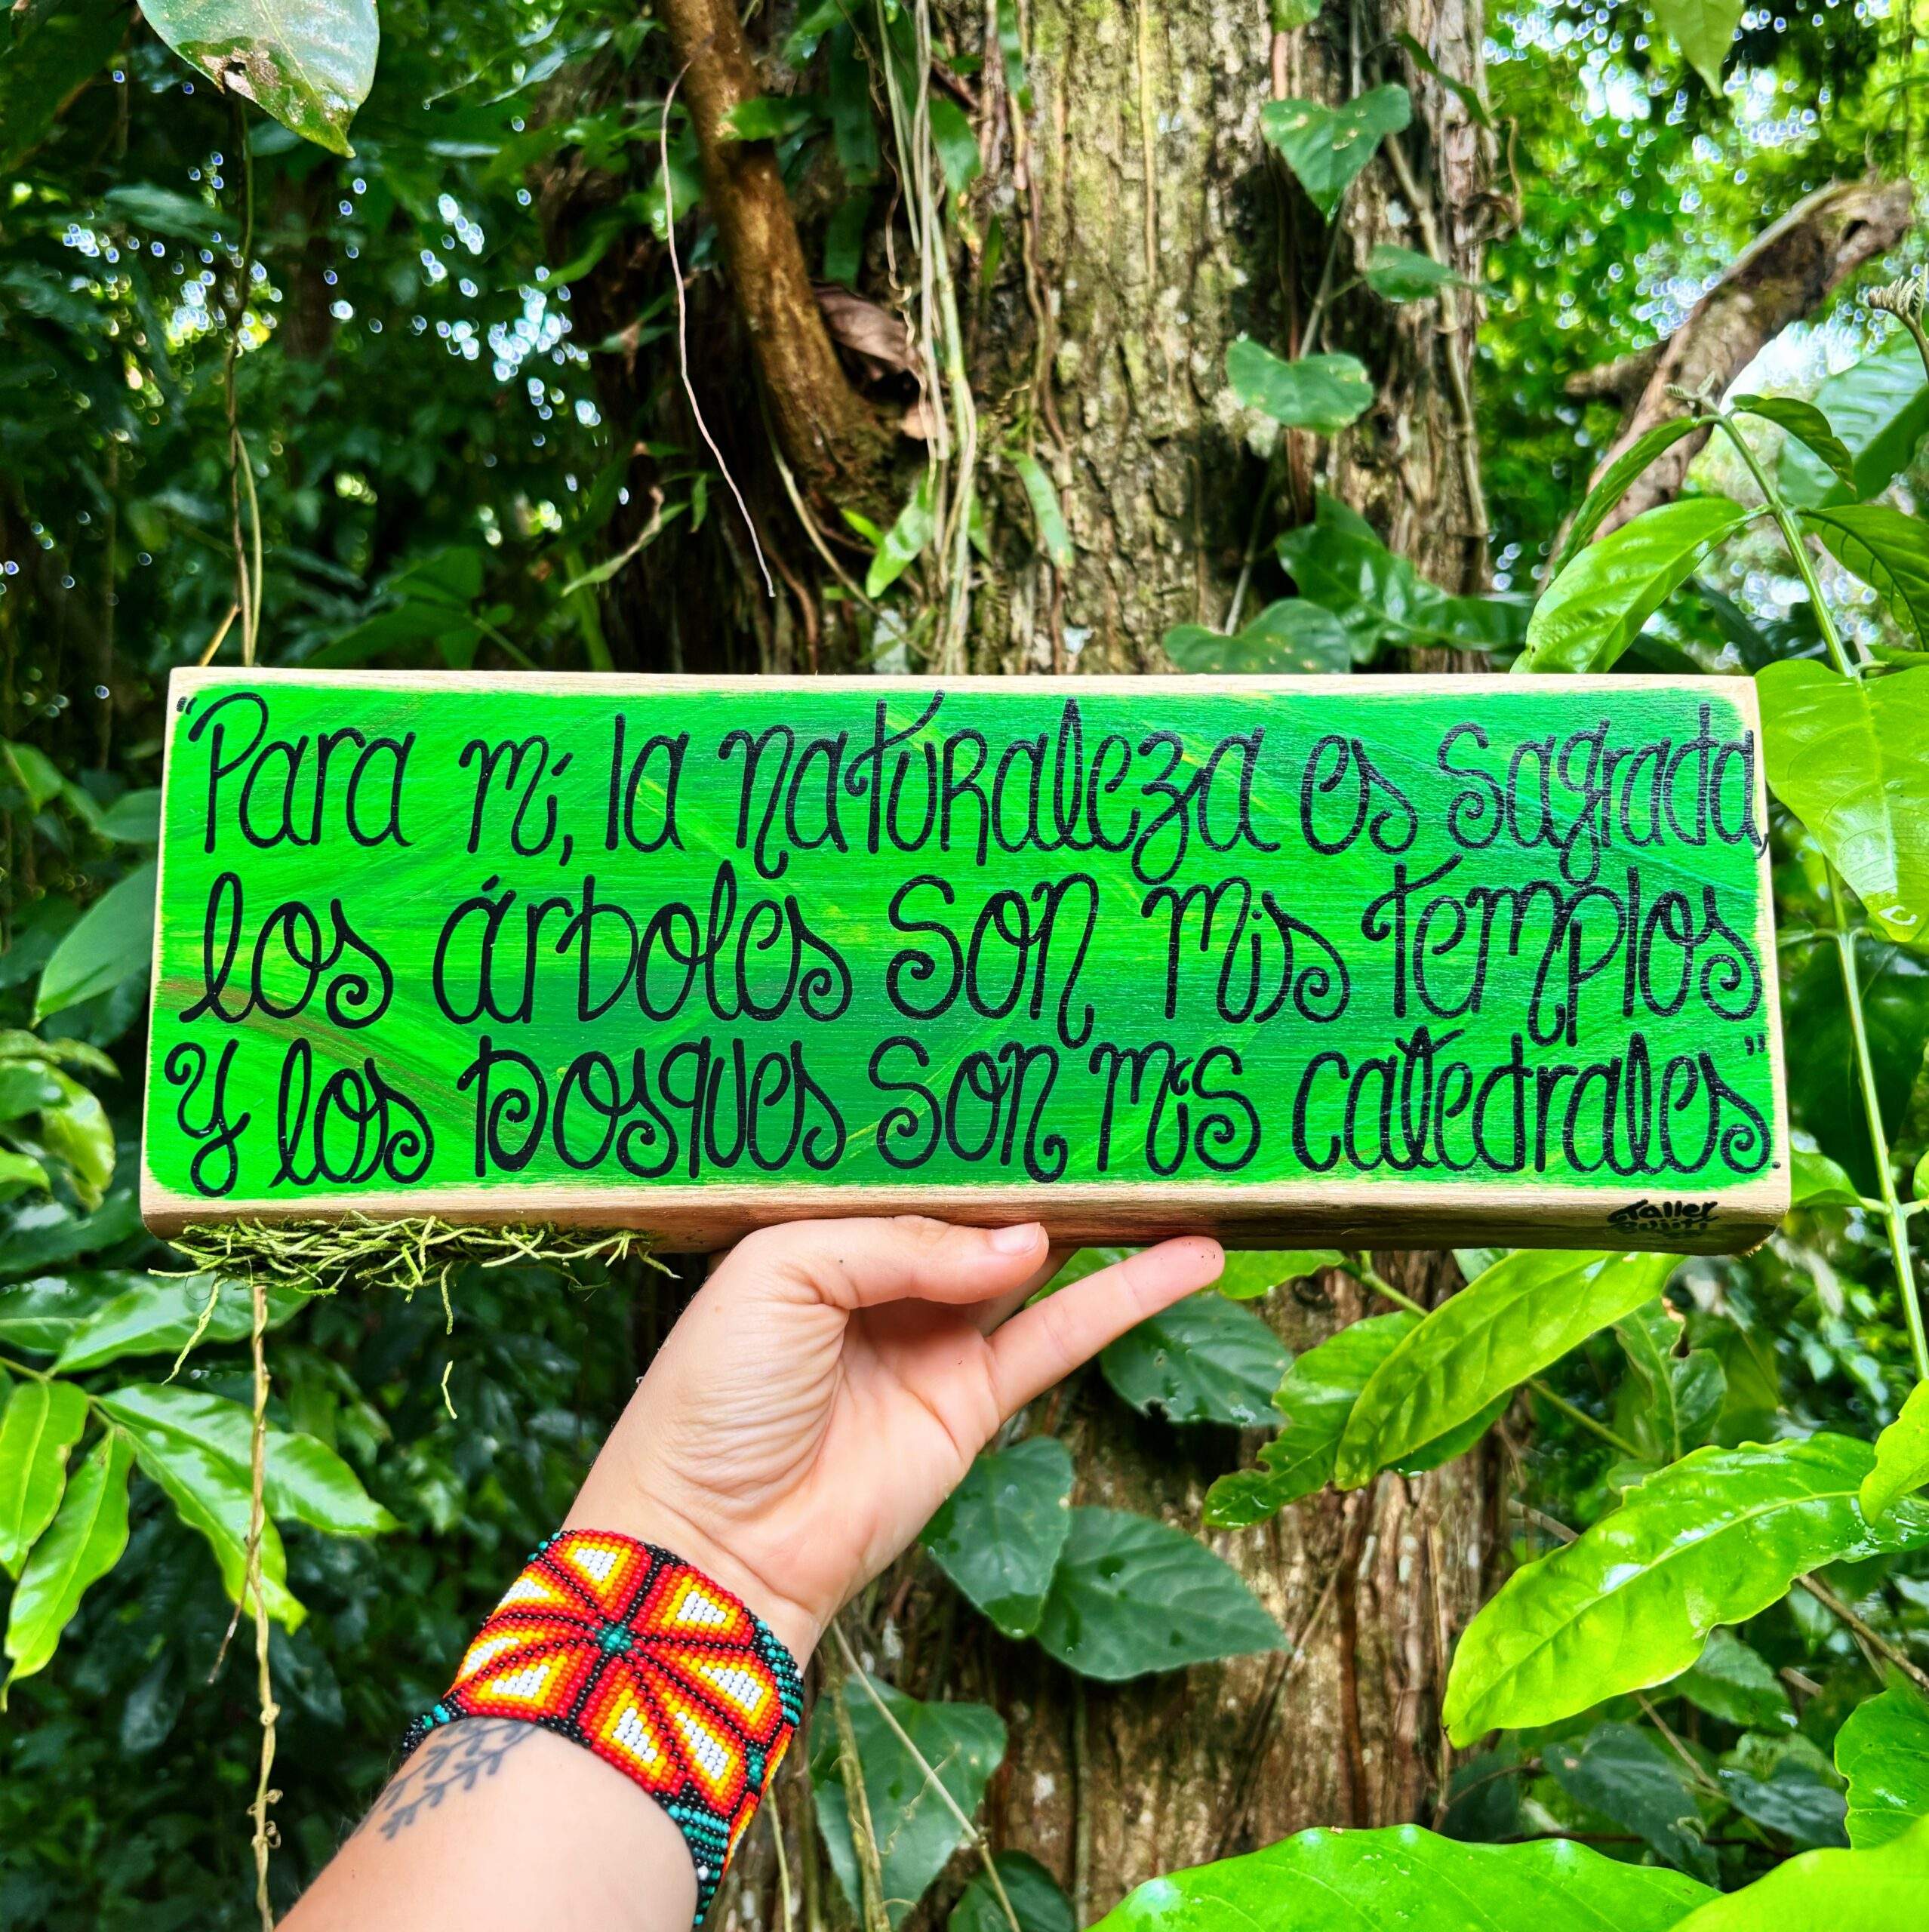 "Para mí, la naturaleza es sagrada,
los árboles son mis templos
y los bosques son mis catedrales".
Taller